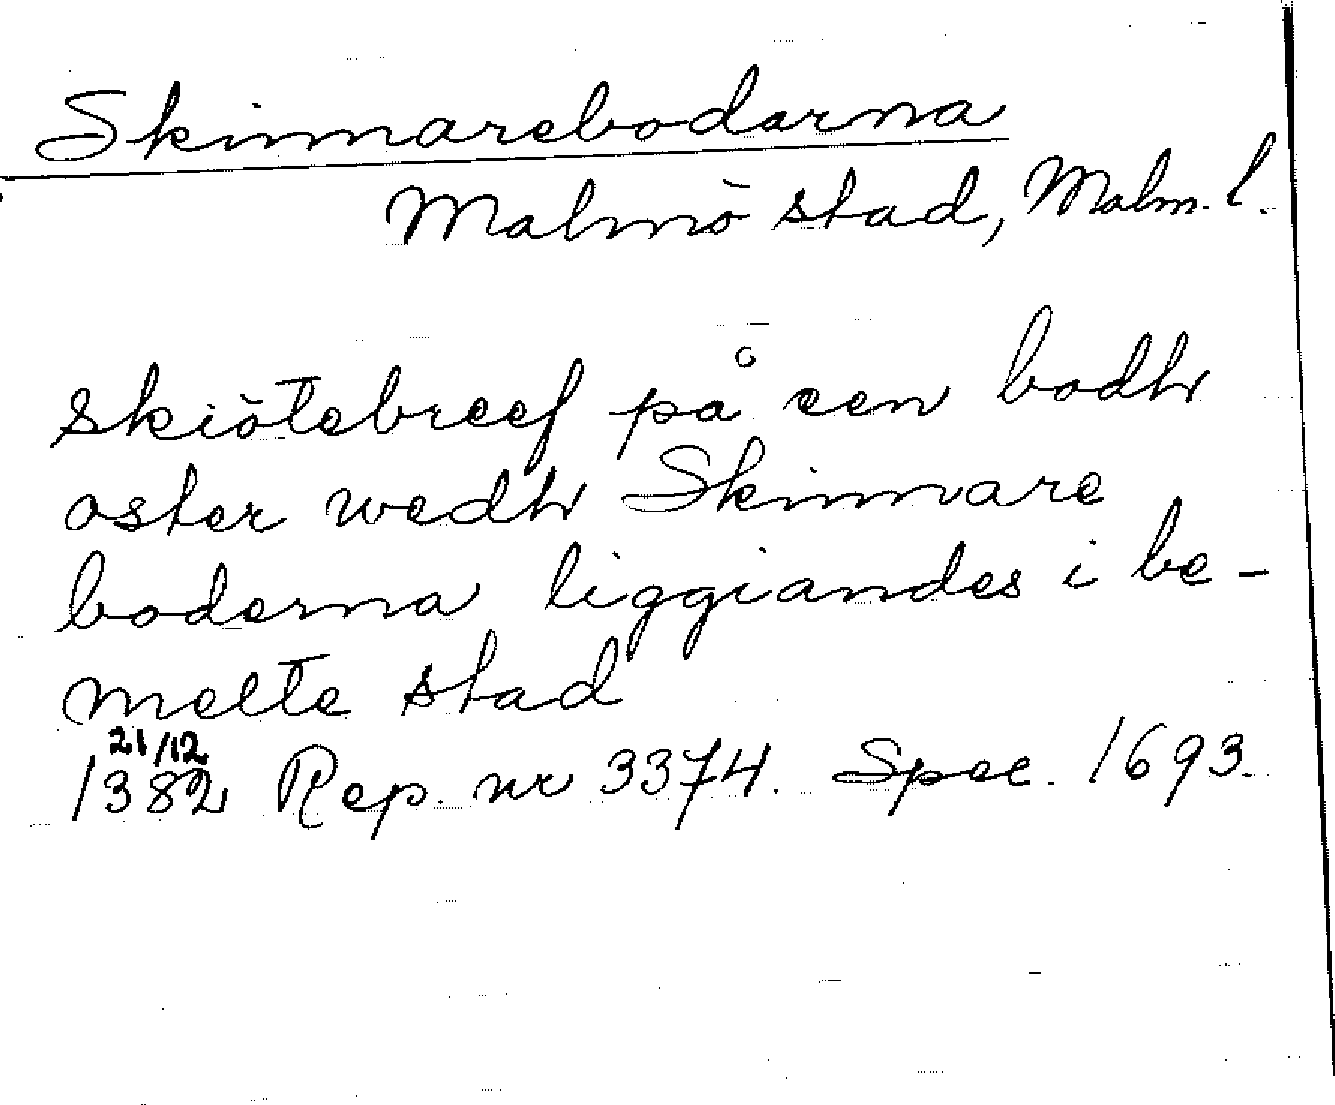 Skinnarebodarna
Malmö stad, Malm. l.
Skiötebreef på een bodh
oster wedh Skinnare
boderna liggiandes i be-
melte stad
21/12
1382 Rep. nr 3374. Spec. 1693.